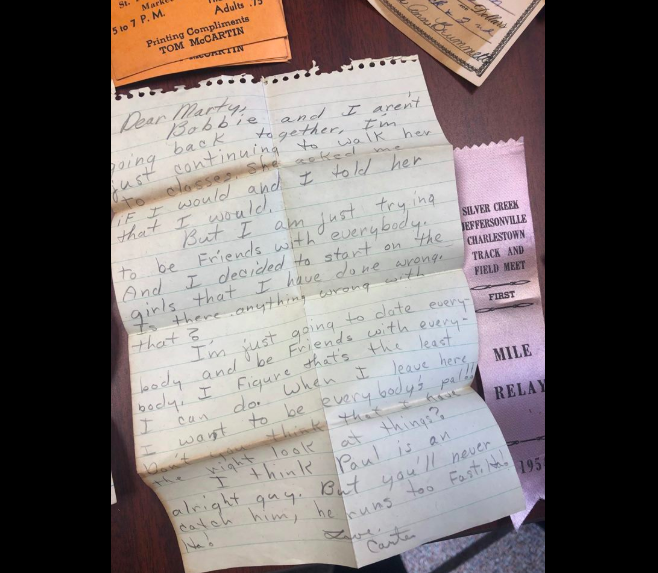 St.
Market
Adults .75
5 to 7 P. M.
Printing Compliments
TOM McCARTIN
McCARTIN
Dollars
Dear Marty,
Bobbie and I aren't
going back together, I'm
just continuing to walk her
to classes. She asked me
if I would and I told her
that I would.
But I am just trying
to be Friends with everybody.
And I decided to start on the
girls that I have done wrong.
Is there anything wrong with
that?
I'm just going to date every-
body and be Friends with every-
body. I Figure that's the least
I can do. When I leave here
I want to be everybody's pal!!!
Don't you think that I have
the right look at things?
I think Paul is an
alright guy. But you'll never
catch him, he runs too Fast. Ha!
Ha!
Love,
Carter
SILVER CREEK
JEFFERSONVILLE
CHARLESTOWN
TRACK AND
FIELD MEET
FIRST
MILE
RELAY
195